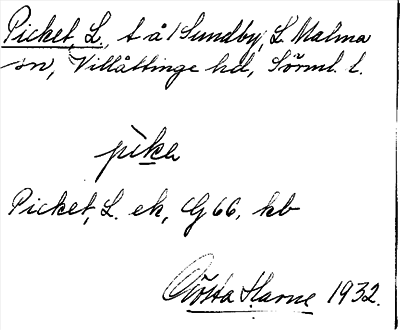 Picket, L., t å /Sundby, L. Malma
sn, Villåttinge hd, Sörml. l.
pika
Picket, L. ek, G 66, kb
Gösta Harne 1932.